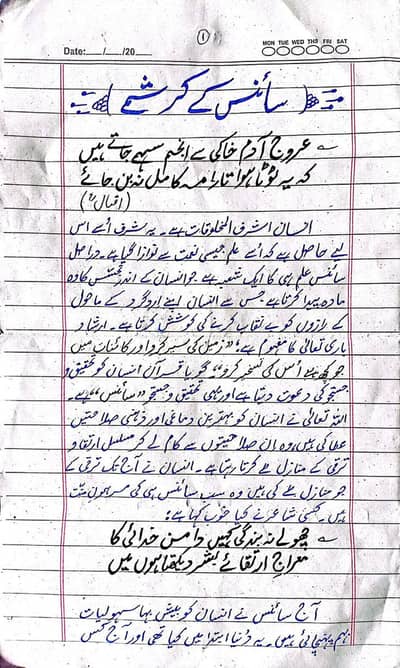 ①
Date:___/___/20___
MON TUE WED THU FRI SAT
سائنس کے کرشمے
عروجِ آدمِ خاکی سے انجم سہمے جاتے ہیں
کہ یہ ٹوٹا ہوا تارا مہ کامل نہ بن جائے
(اقبالؒ)
انسان اشرف المخلوقات ہے۔ یہ شرف اُسے اس
لیے حاصل ہے کہ اُسے علم جیسی نعمت سے نوازا گیا ہے۔ دراصل
سائنس علم ہی کا ایک شعبہ ہے جو انسان کے اندر تجسّس کا وہ
مادہ پیدا کرتا ہے جس سے انسان اپنے اردگرد کے ماحول
کے رازوں کو بے نقاب کرنے کی کوشش کرتا ہے۔ ارشادِ
باری تعالیٰ کا مفہوم ہے؛ "زمین کی سیر کرو اور کائنات میں
جو کچھ ہے اُس کی تسخیر کرو"، گویا قرآن انسان کو تحقیق و
جستجو کی دعوت دیتا ہے اور یہی تحقیق و جستجو "سائنس" ہے۔
اللہ تعالیٰ نے انسان کو بہترین دماغی اور ذہنی صلاحیتیں
عطا کی ہیں، وہ ان صلاحیتوں سے کام لے کر مسلسل ارتقا و
ترقی کے منازل طے کرتا رہتا ہے۔ انسان نے آج تک ترقی کے
جو منازل طے کی ہیں وہ سب سائنس ہی کی مرہونِ منّت
ہیں۔ کسی شاعر نے کیا خوب کہا ہے؛
چھولے نہ بندگی کہیں دامن خدائی کا
معراجِ ارتقائے بشر دیکھتا ہوں میں
آج سائنس نے انسان کو بیش بہا سہولیات
بہم پہنچائی ہیں۔ یہ دُنیا ابتدا میں کیا تھی اور آج کس